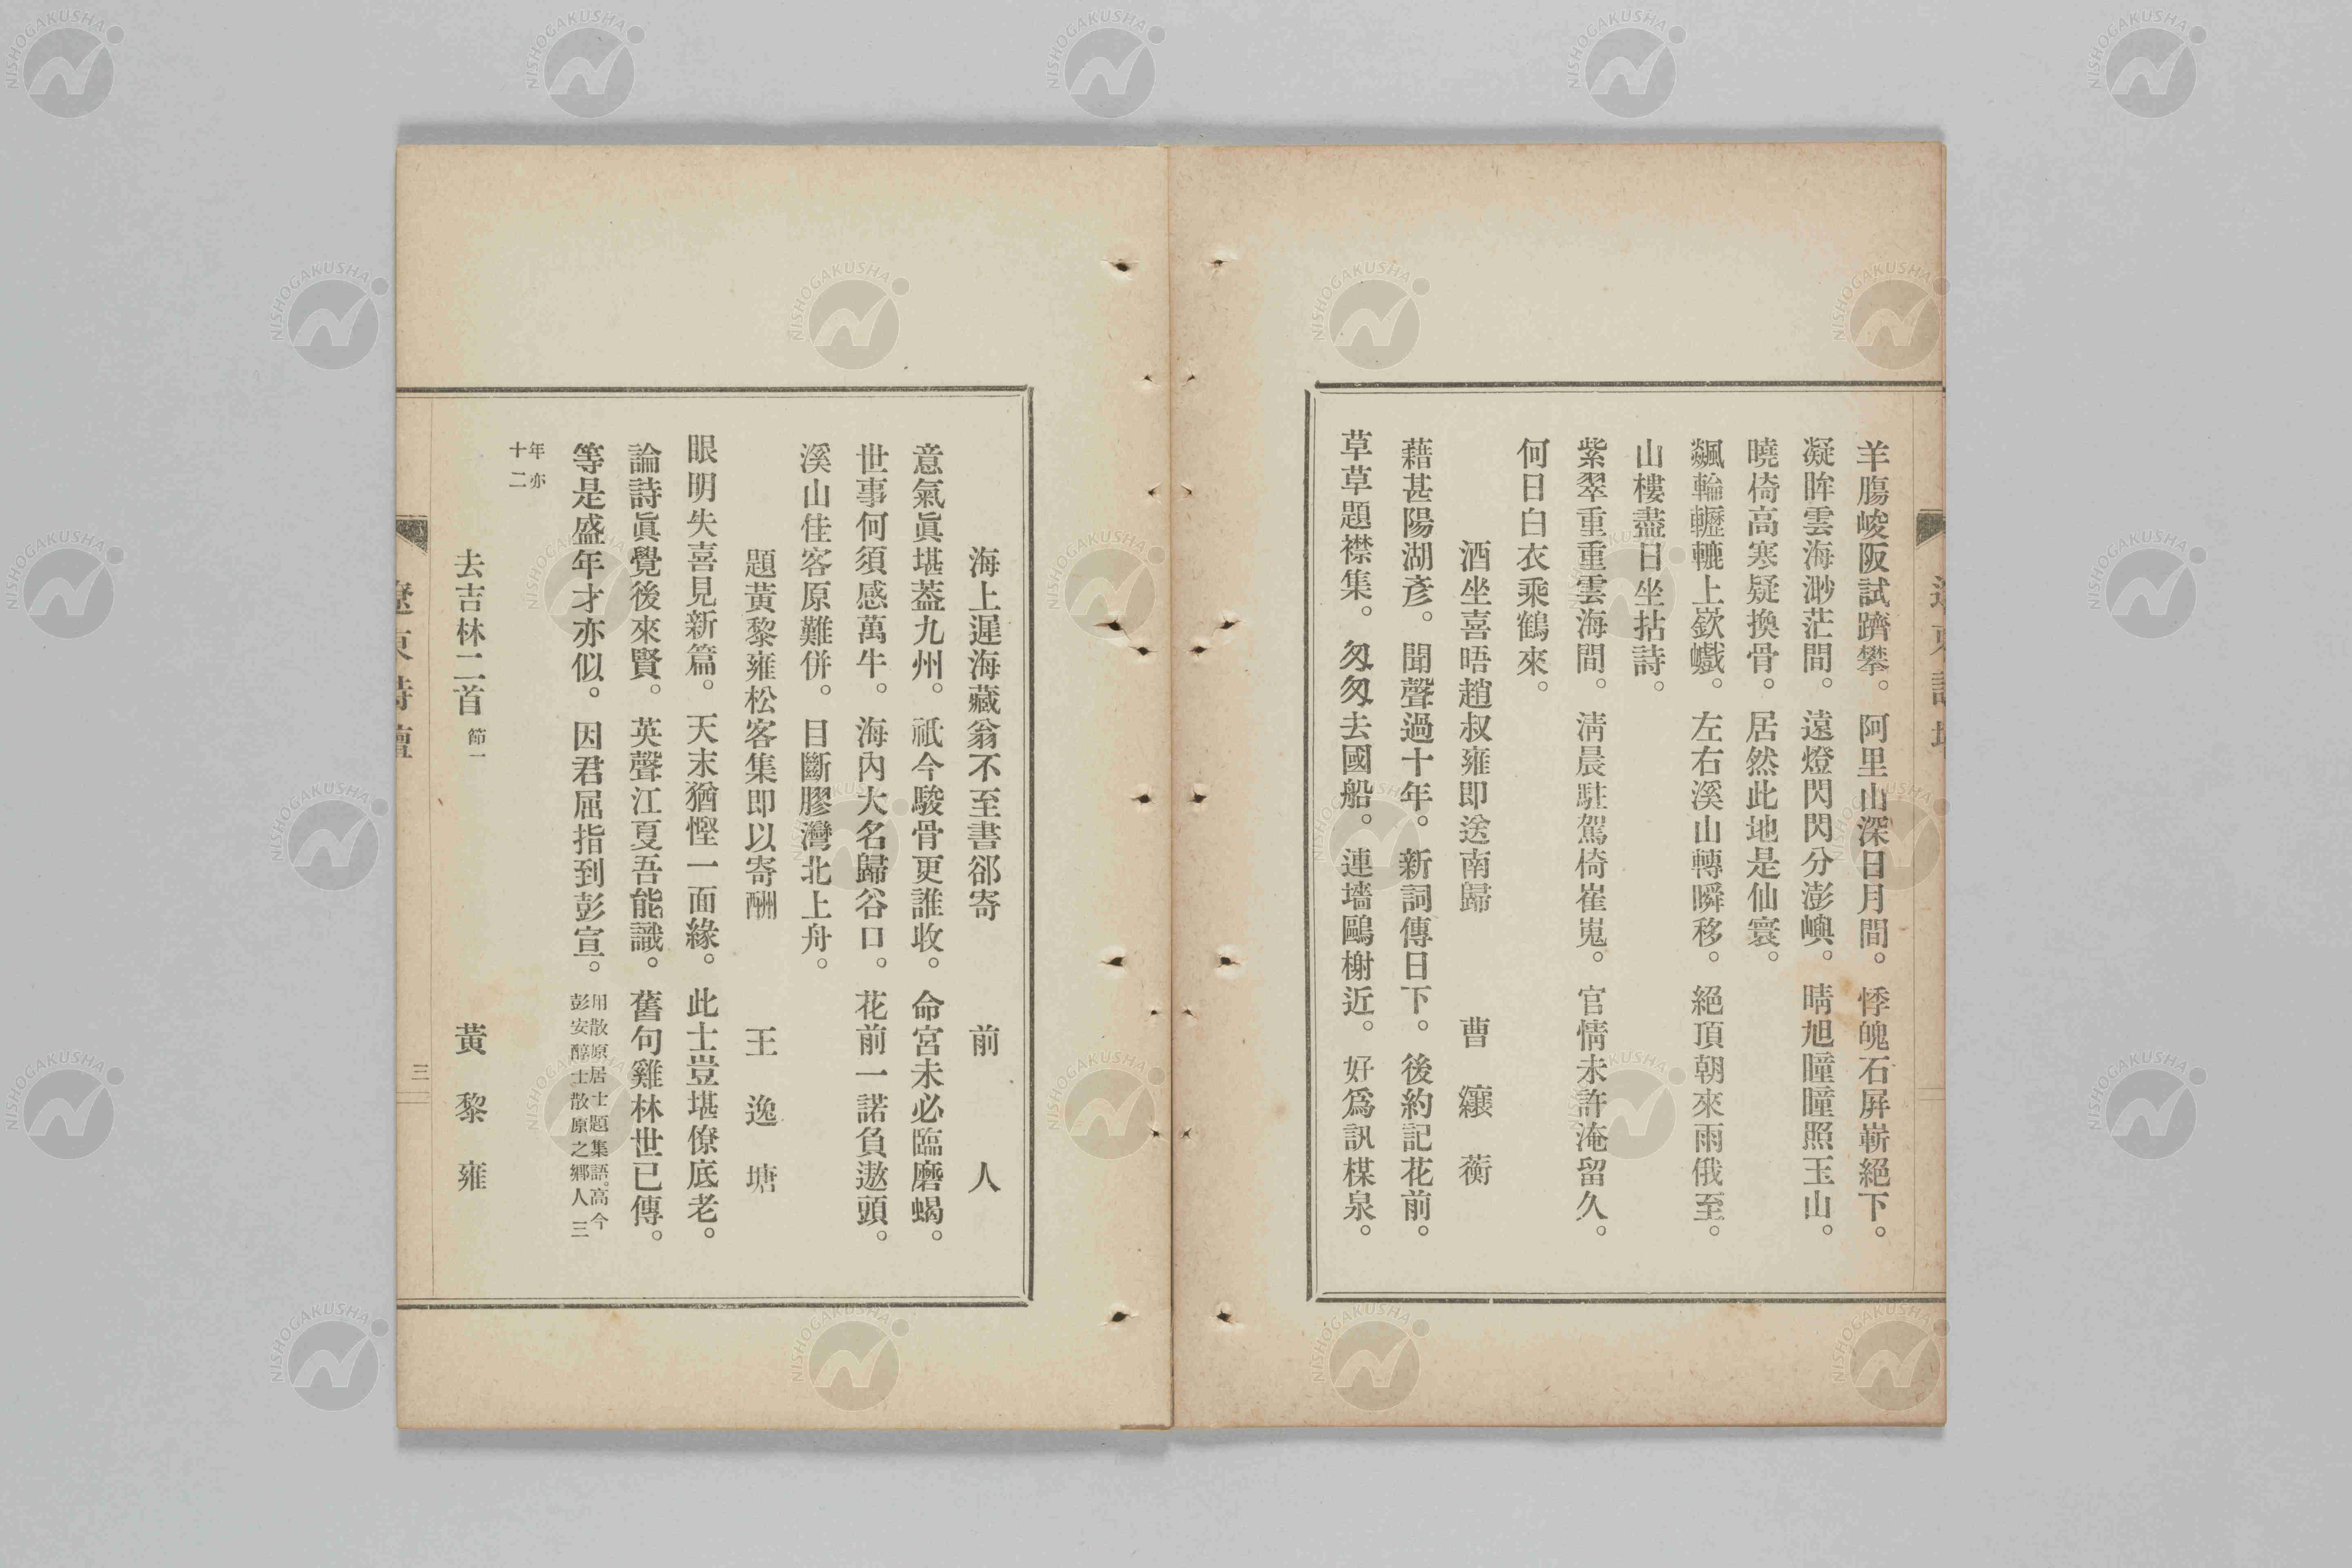 羊膓峻阪試躋攀。阿里山深日月間。悸魄石屛嶄絕下。
凝眸雲海渺茫間。遠燈閃閃分澎嶼。晴旭瞳瞳照玉山。
曉倚高寒疑換骨。居然此地是仙寰。
飊輪轣轆上嶔巇。左右溪山轉瞬移。絕頂朝來雨俄至。
山樓盡日坐拈詩。
紫翠重重雲海間。淸晨駐駕椅崔嵬。官情未許淹留久。
何日白衣乘鶴來。
酒坐喜晤趙叔雍即送南歸 曹纕蘅
藉甚陽湖彥。聞聲過十年。新詞傳日下。後約記花前。
草草題襟集。匆匆去國船。連墻鷗榭近。好爲訊楳泉。
海上遲海藏翁不至書郤寄 前人
意氣眞堪蓋九州。祇今駿骨更誰收。命宮未必臨磨蝎。
世事何須感萬牛。海內大名歸谷口。花前一諾負遨頭。
溪山佳客原難併。目斷膠灣北上舟。
題黃黎雍松客集即以寄酬 王逸塘
眼明失喜見新篇。天末猶慳一面緣。此士豈堪僚底老。
論詩眞覺後來賢。英聲江夏吾能識。舊句雞林世已傳。
等是盛年才亦似。因君屈指到彭宣。用散原居士題集語。高今
彭安醇士散原之鄕人三
年亦
十二
去吉林二首 節一 黃黎雍
遼東詩壇
三
NISHOGAKUSHA